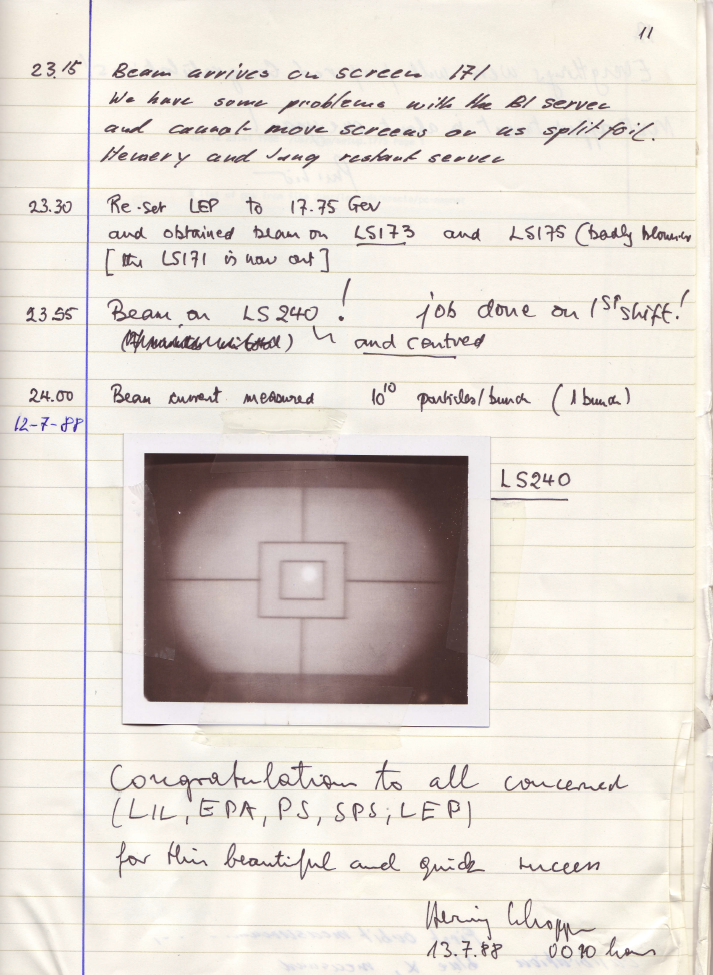 11
23.15 Beam arrives on screen 171
We have some problems with the BI server
and cannot move screens or us split foil.
Hemery and Jung restart server
23.30 Re-set LEP to 17.75 Gev
and obtained beam on LS173 and LS175 (badly blown
[the LS171 is now out]
23.55 Beam on LS240! job done on 1ST shift!
and centred
24.00 Beam current measured 10^10 particles/bunch (1 bunch)
12-7-88
LS240
Congratulation to all concerned
(LIL, EPA, PS, SPS, LEP)
for this beautiful and quick success
13.7.88 0010 hours